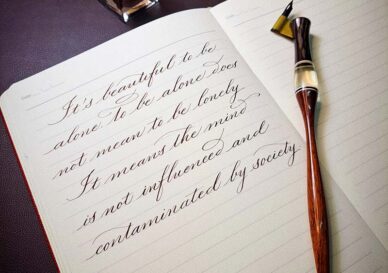 It's beautiful to be
alone to be alone does
not mean to be lonely
It means the mind
is not influenced and
contaminated by society